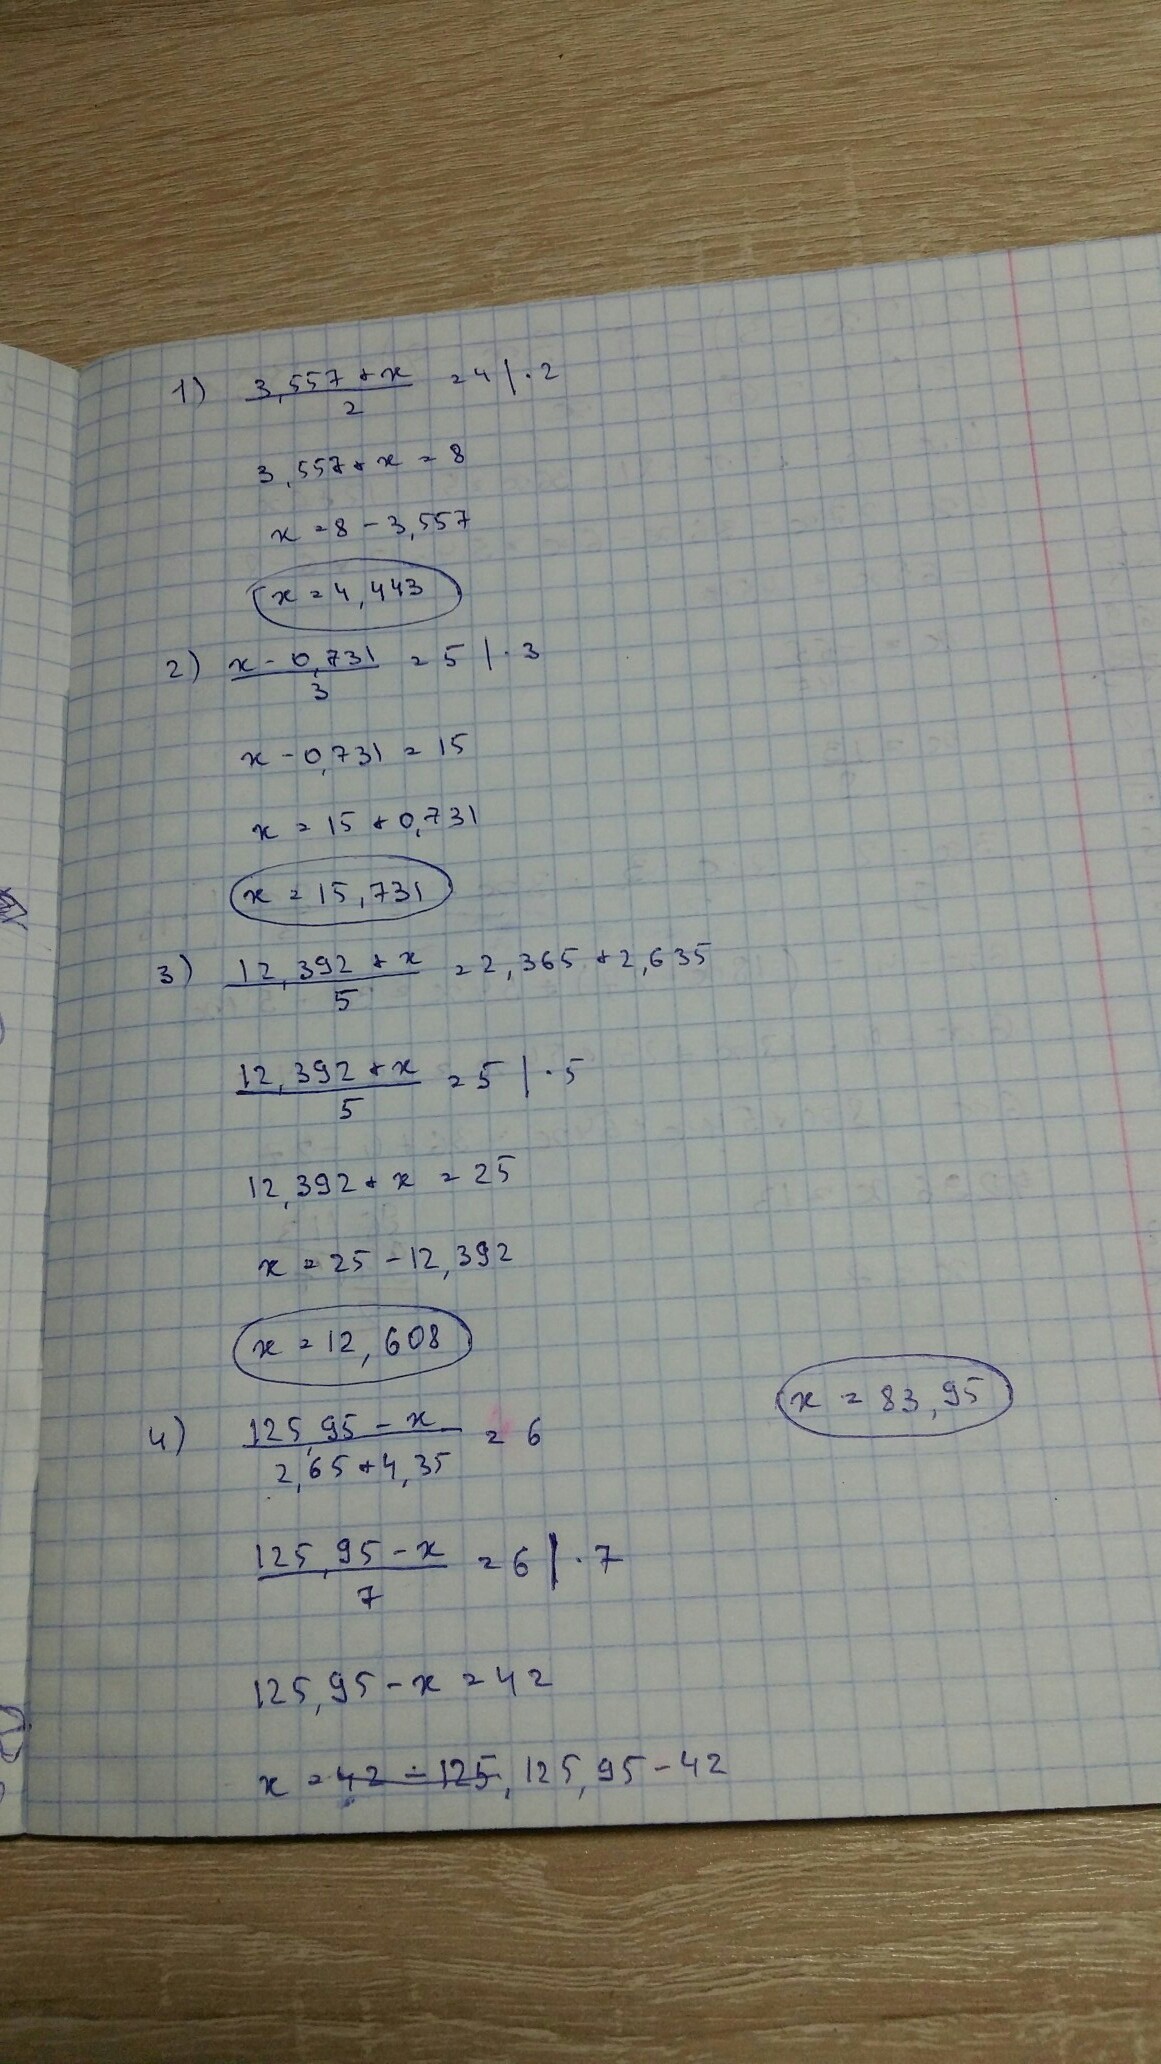 1) (3,557 + x)/2 = 4 | · 2
3,557 + x = 8
x = 8 - 3,557
x = 4,443
2) (x - 0,731)/3 = 5 | · 3
x - 0,731 = 15
x = 15 + 0,731
x = 15,731
3) (12,392 + x)/5 = 2,365 + 2,635
(12,392 + x)/5 = 5 | · 5
12,392 + x = 25
x = 25 - 12,392
x = 12,608
x = 83,95
4) (125,95 - x)/(2,65 + 4,35) = 6
(125,95 - x)/7 = 6 | · 7
125,95 - x = 42
x = 42 - 125, 125,95 - 42